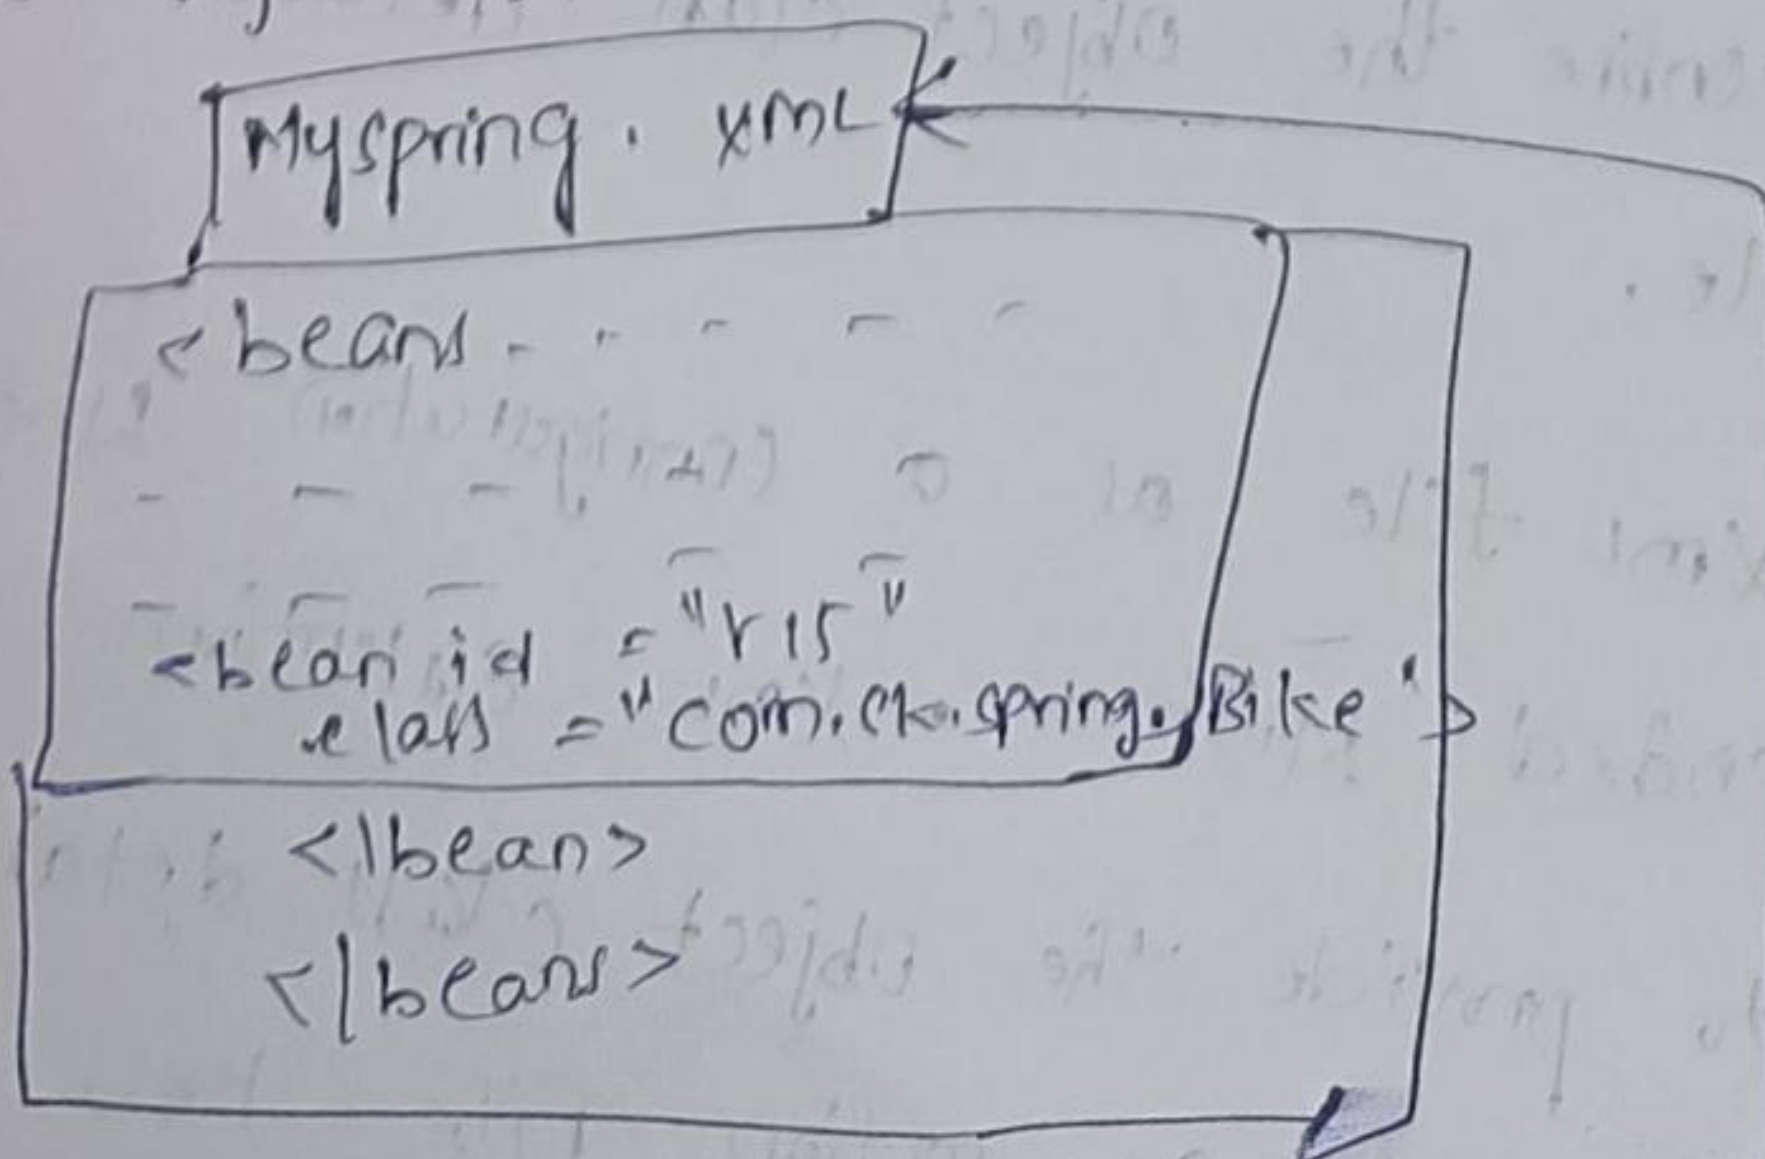 Myspring. xml
<beans - - - - -
- - - -
- - - - -
<bean id = "r15"
class = "com.ck.spring.Bike">
</bean>
</beans>